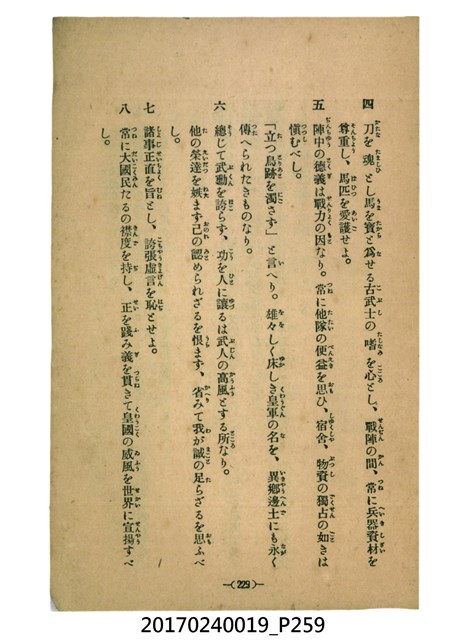 四　刀を魂とし馬を寶と爲せる古武士の嗜を心とし、戰陣の間、常に兵器資材を
尊重し、馬匹を愛護せよ。
五　陣中の德義は戰力の因なり。常に他隊の便益を思ひ、宿舍、物資の獨占の如きは
愼むべし。
「立つ鳥跡を濁さず」と言へり。雄々しく床しき皇軍の名を、異鄕邊土にも永く
傳へられたきものなり。
六　總じて武勳を誇らず、功を人に讓るは武人の高風とする所なり。
他の榮達を嫉まず己の認められざるを恨まず、省みて我が誠の足らざるを思ふべ
し。
七　諸事正直を旨とし、誇張虛言を恥とせよ。
八　常に大國民たるの襟度を持し、正を踐み義を貫きて皇國の威風を世界に宣揚すべ
し。
(229)
20170240019_P259